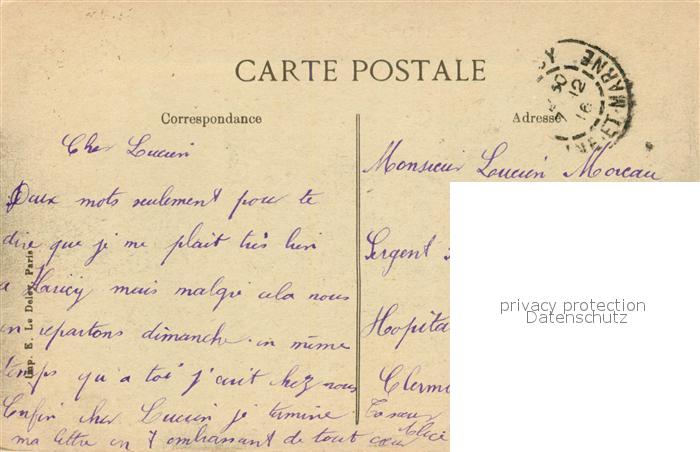 CARTE POSTALE
Correspondance
Adresse
Cher Lucien
Deux mots seulement pour te
dire que je me plait très bien
a mais malgré cela nous
en repartons dimanche. in même
temps qu'a toi j'ecrit chez nous
Enfin cher Lucien je termine
ma lettre en t embrassant de tout coeur
Monsieur Lucien Moreau
Sergent
Hopita
Clermo
Ta soeur
Alice
Imp. E. Le Deley, Paris
ET MARNE
privacy protection
Datenschutz